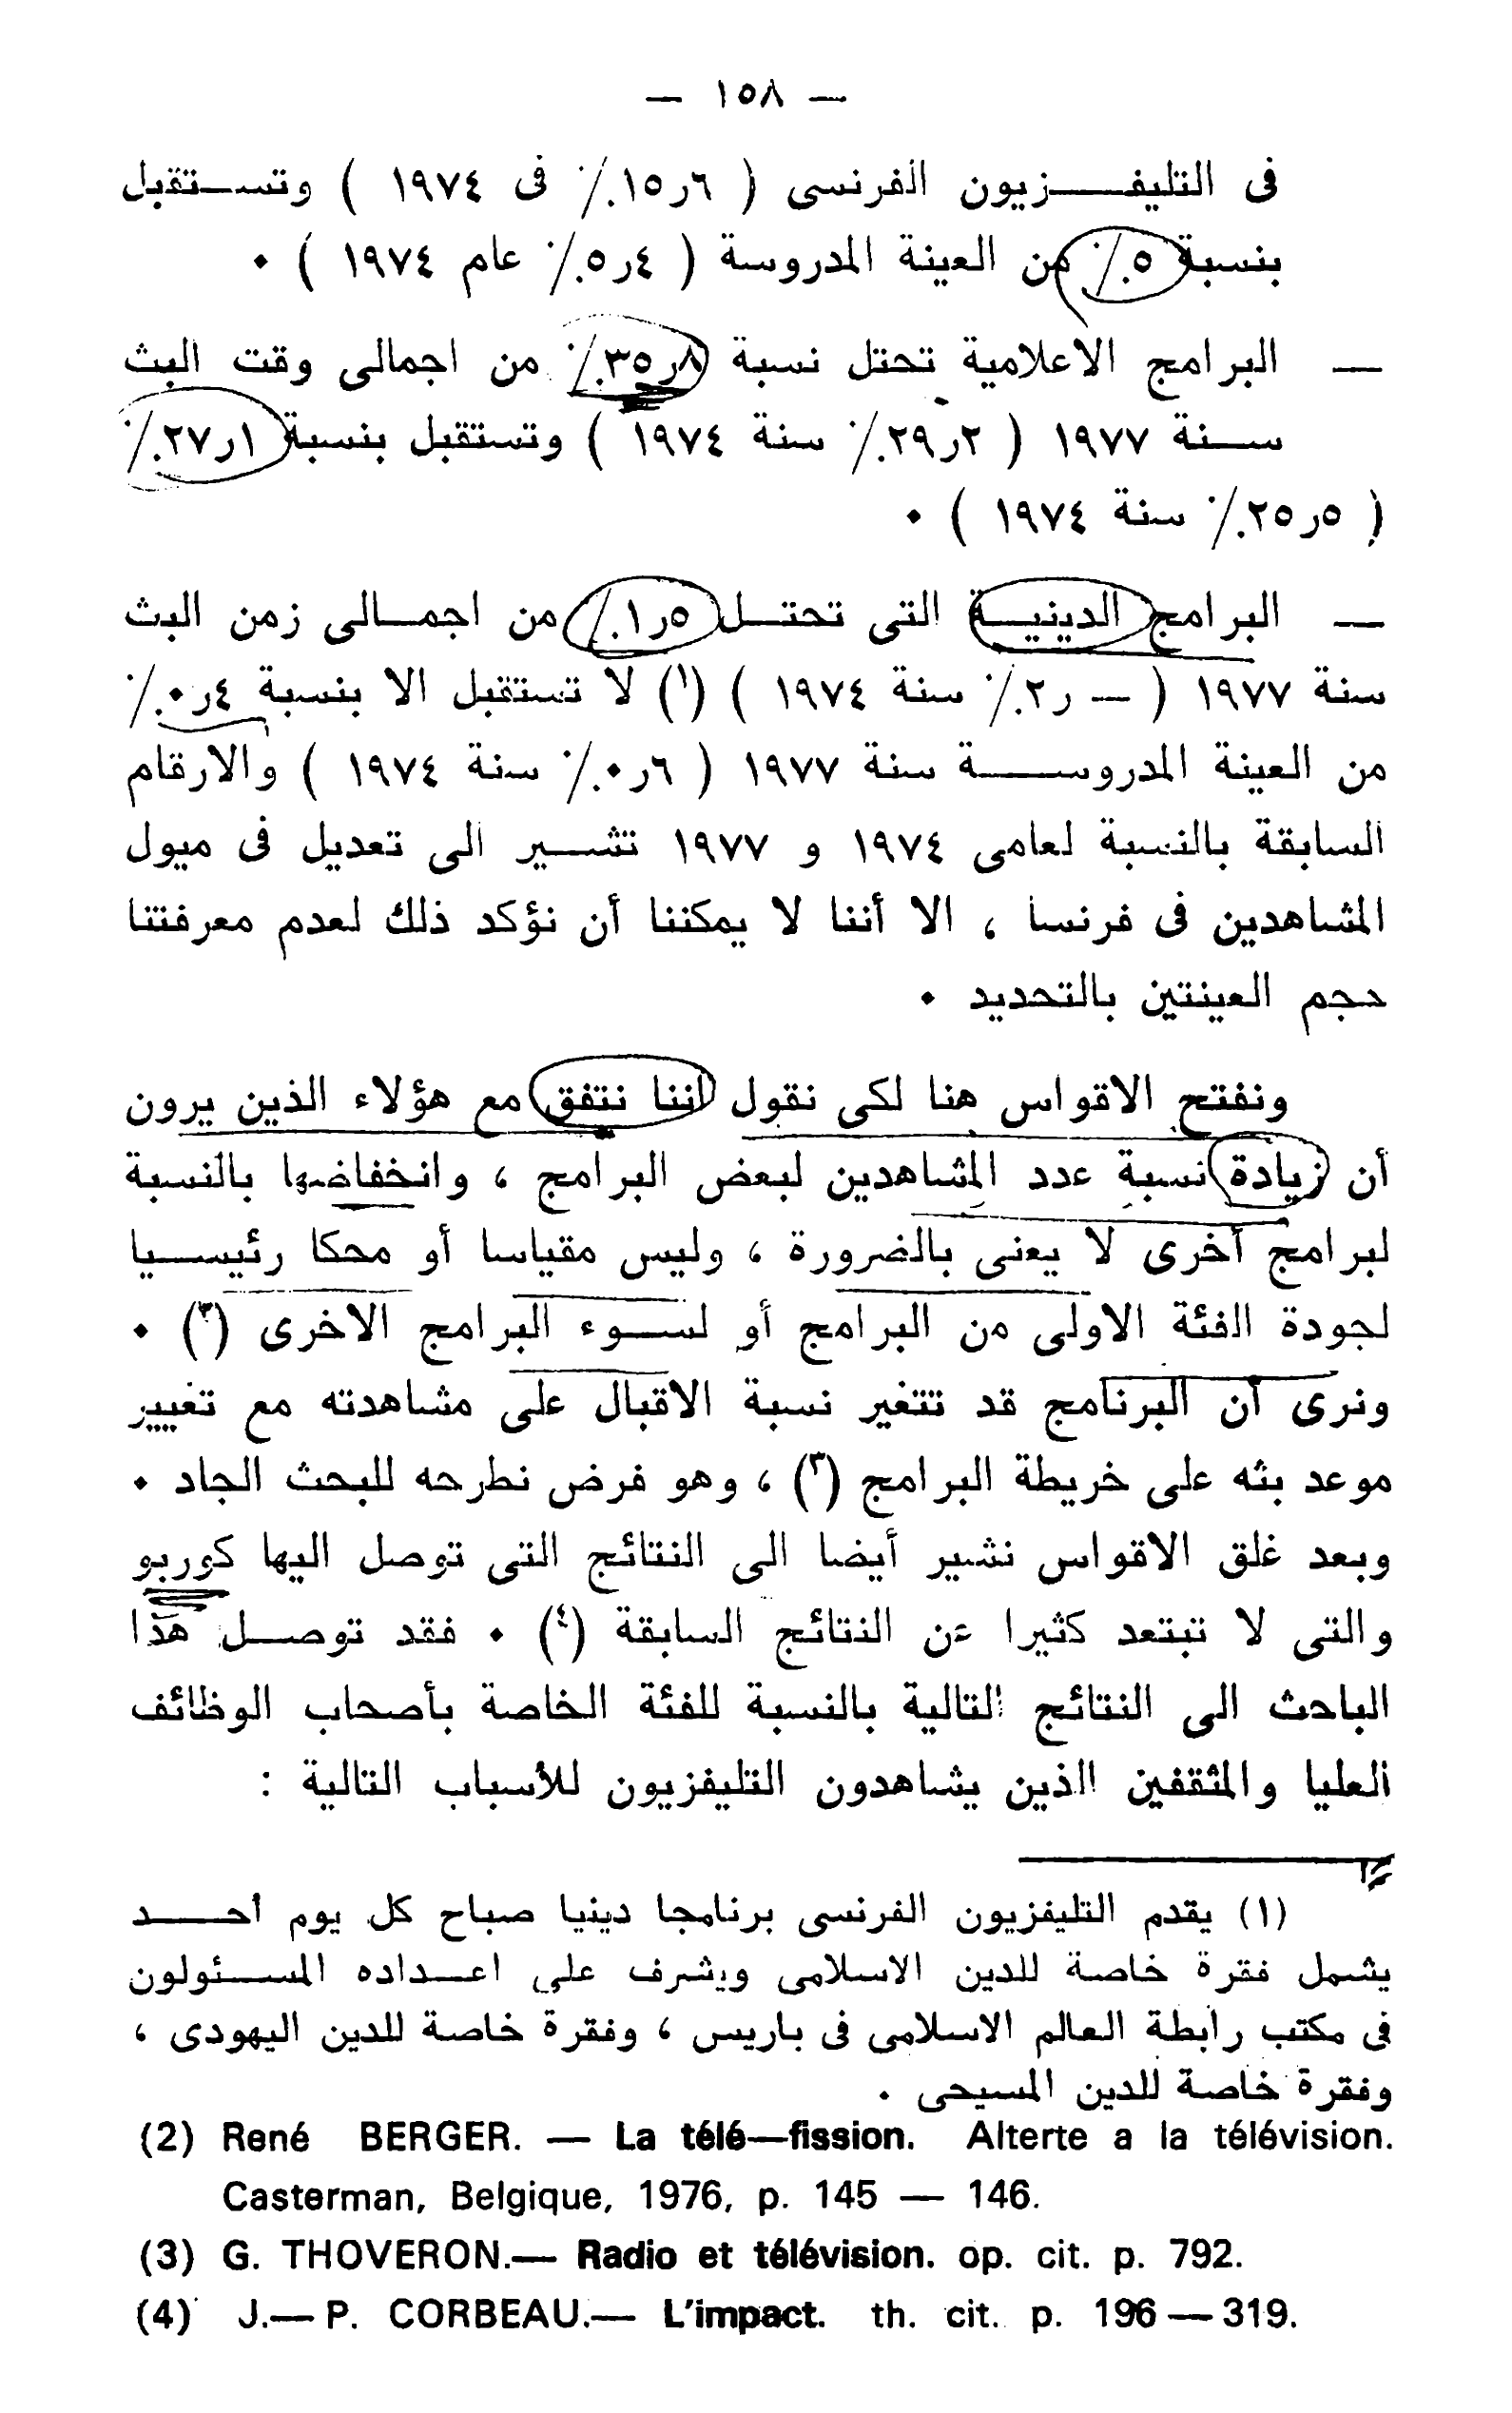 — ١٥٨ —
فى التليفـــزيون الفرنسى ( ٦ر١٥٪ فى ١٩٧٤ ) وتســتقبل
بنسبة ٥٪ من العينة المدروسة ( ٤ر٥٪ عام ١٩٧٤ ) ٠
— البرامج الاعلامية تحتل نسبة ٨ر٣٥٪ من اجمالى وقت البث
ســنة ١٩٧٧ ( ٢ر٢٩٪ سنة ١٩٧٤ ) وتستقبل بنسبة ١ر٢٧٪
( ٥ر٢٥٪ سنة ١٩٧٤ ) ٠
— البرامج الدينيــة التى تحتــل ٥ر١٪ من اجمــالى زمن البث
سنة ١٩٧٧ ( — ر٢٪ سنة ١٩٧٤ ) (١) لا تستقبل الا بنسبة ٤ر٠٪
من العينة المدروســـة سنة ١٩٧٧ ( ٦ر٠٪ سنة ١٩٧٤ ) والارقام
السابقة بالنسبة لعامى ١٩٧٤ و ١٩٧٧ تشــير الى تعديل فى ميول
المشاهدين فى فرنسا ، الا أننا لا يمكننا أن نؤكد ذلك لعدم معرفتنا
حجم العينتين بالتحديد ٠
ونفتح الاقواس هنا لكى نقول اننا نتفق مع هؤلاء الذين يرون
أن زيادة نسبة عدد المشاهدين لبعض البرامج ، وانخفاضها بالنسبة
لبرامج أخرى لا يعنى بالضرورة ، وليس مقياسا أو محكا رئيســيا
لجودة الفئة الاولى من البرامج أو لســوء البرامج الاخرى (٢) ٠
ونرى أن البرنامج قد تتغير نسبة الاقبال على مشاهدته مع تغيير
موعد بثه على خريطة البرامج (٣) ، وهو فرض نطرحه للبحث الجاد ٠
وبعد غلق الاقواس نشير أيضا الى النتائج التى توصل اليها كوربو
والتى لا تبتعد كثيرا عن النتائج السابقة (٤) ٠ فقد توصــل هذا
الباحث الى النتائج التالية بالنسبة للفئة الخاصة بأصحاب الوظائف
العليا والمثقفين الذين يشاهدون التليفزيون للأسباب التالية :
(١) يقدم التليفزيون الفرنسى برنامجا دينيا صباح كل يوم أحـــد
يشمل فقرة خاصة للدين الاسلامى ويشرف على اعــداده المســئولون
فى مكتب رابطة العالم الاسلامى فى باريس ، وفقرة خاصة للدين اليهودى ،
وفقرة خاصة للدين المسيحى .
(2) René BERGER. — La télé—fission. Alterte a la télévision.
Casterman, Belgique, 1976, p. 145 — 146.
(3) G. THOVERON.— Radio et télévision. op. cit. p. 792.
(4) J.— P. CORBEAU.— L'impact. th. cit. p. 196 — 319.